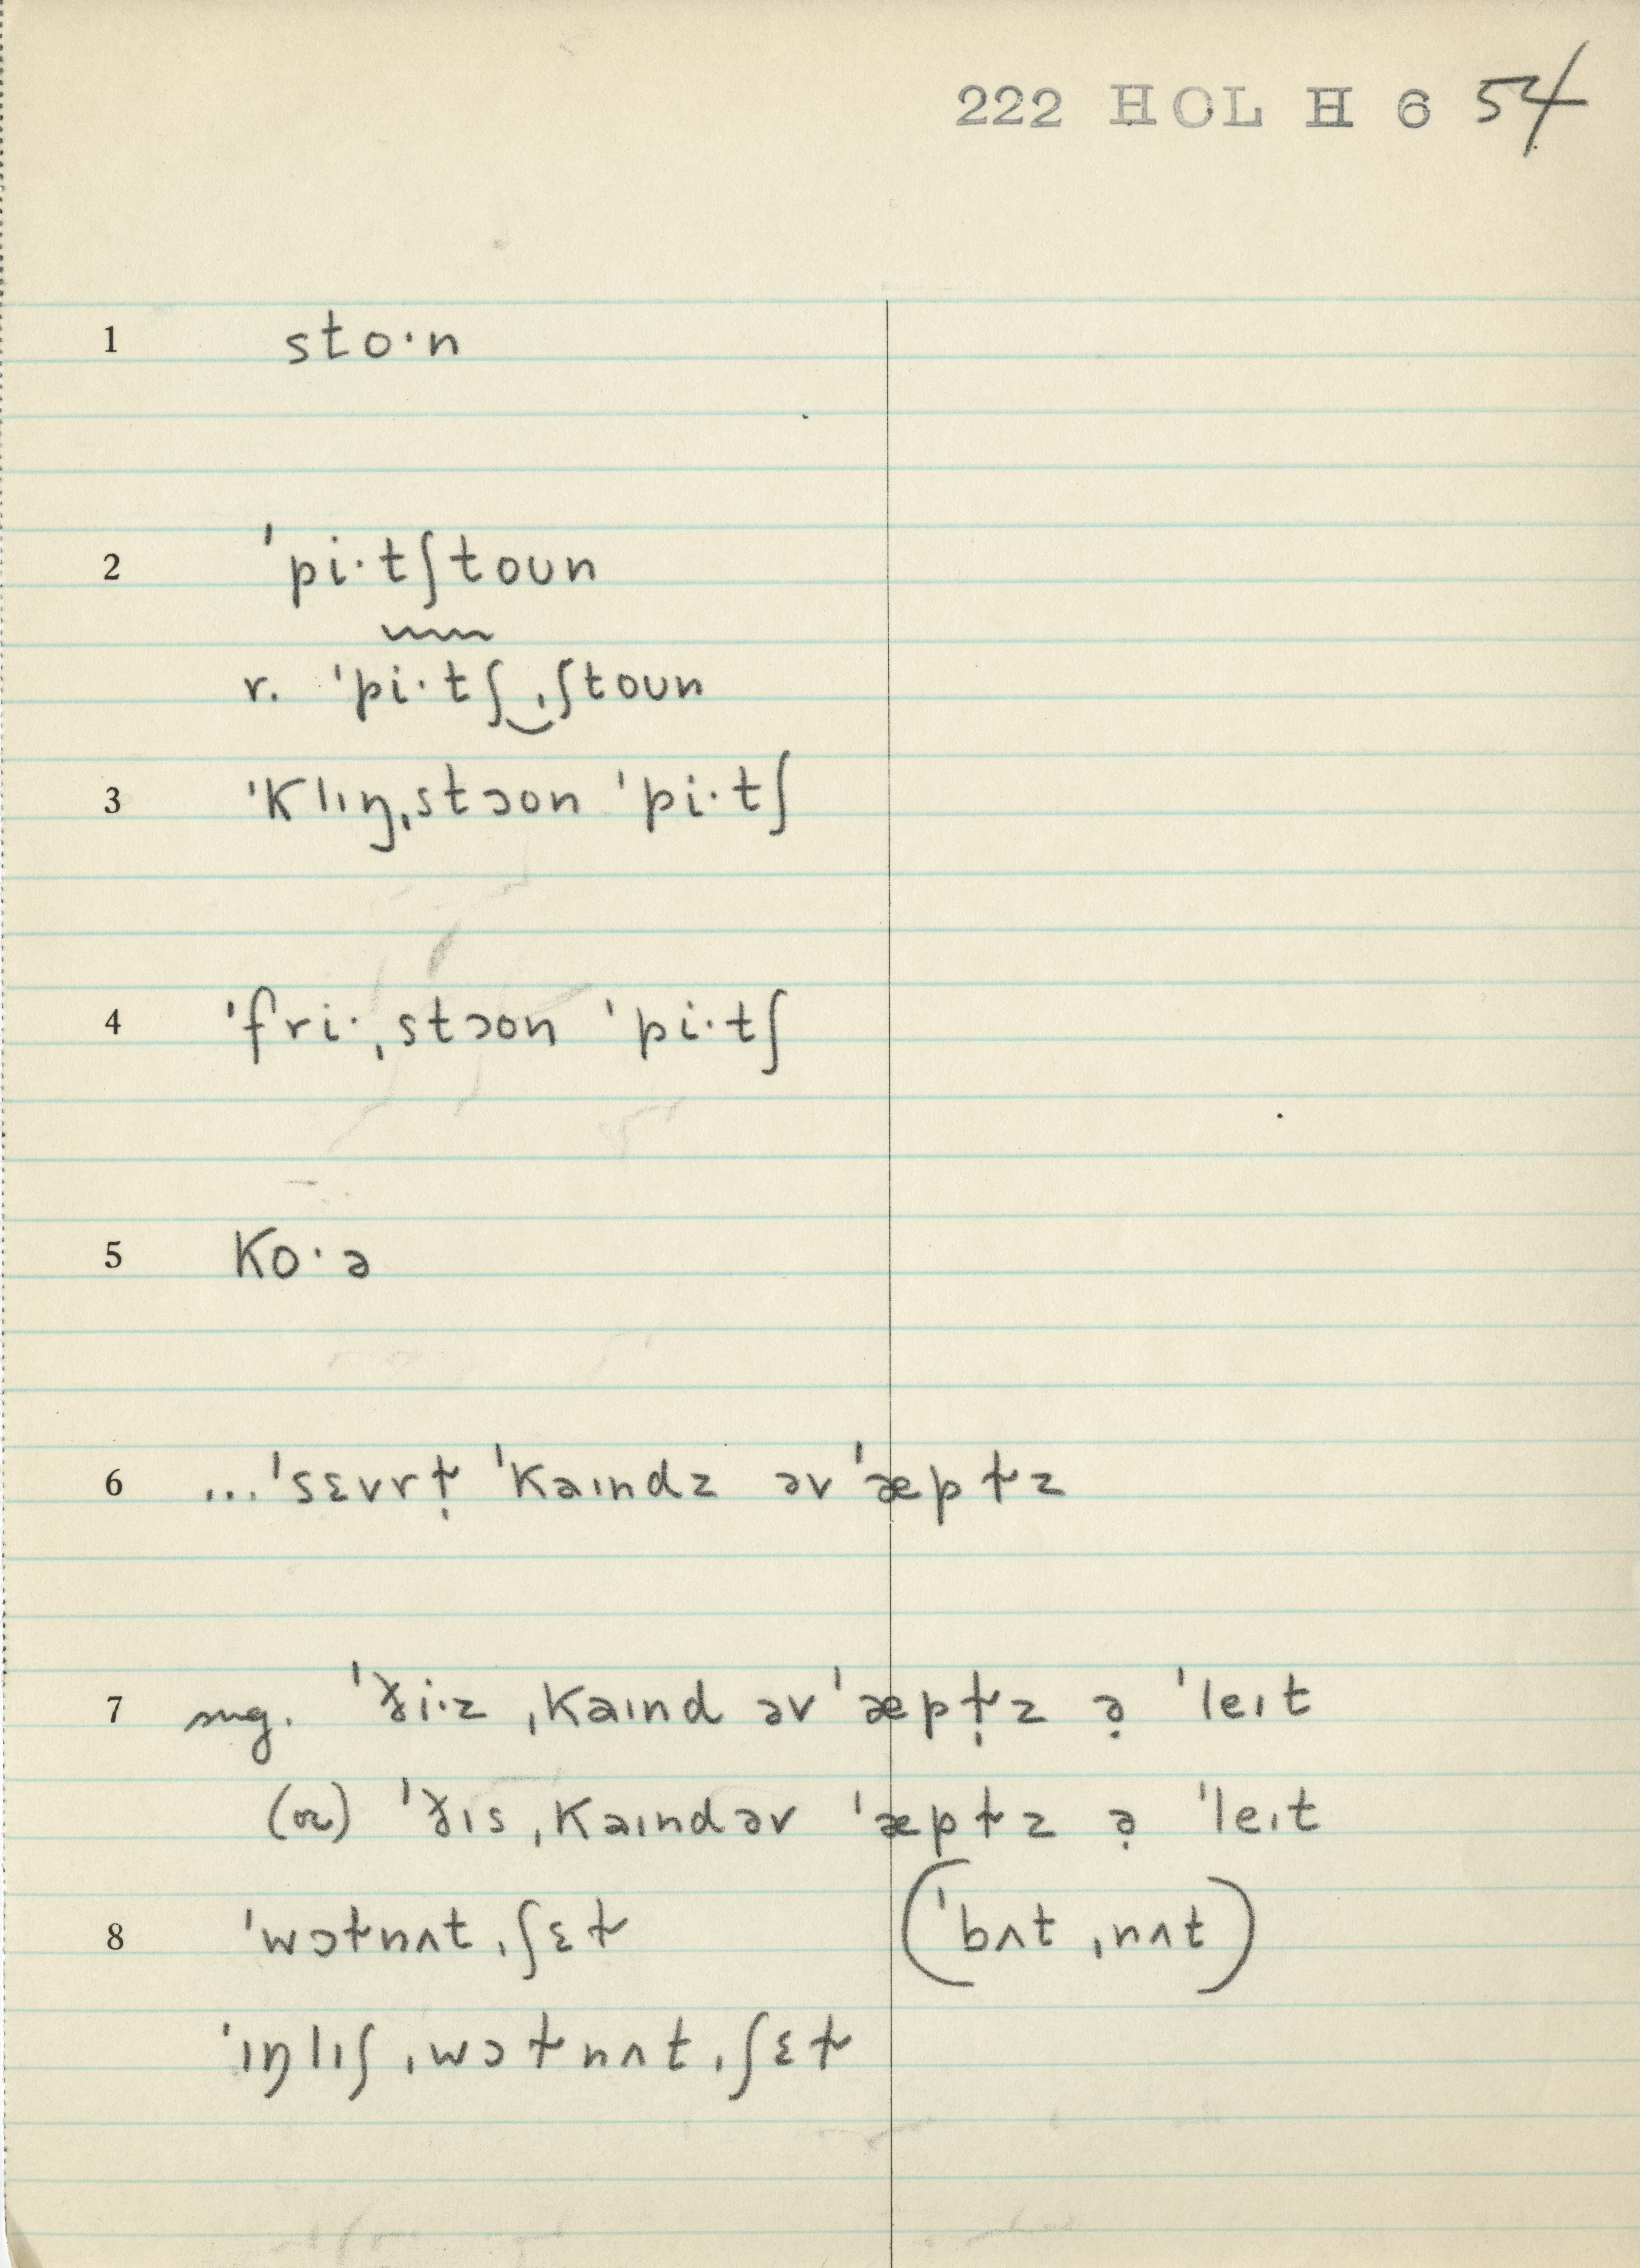 222 HOL H 6 54
1 sto·n
2 ˈpi·tʃtoun
r. ˈpi·tʃ‿ˌʃtoun
3 ˈklıŋˌstɔon ˈpi·tʃ
4 ˈfri·ˌstɔon ˈpi·tʃ
5 ko·ə
6 ...ˈsɛvrɫ̣ ˈkaındz əv ˈæpɫz
7 sug. ˈði·z ˌkaınd əv ˈæpɫ̣z ə̣ ˈleıt
(or) ˈðıs ˌkaındəv ˈæpɫz ə̣ ˈleıt
8 ˈwɔɫnʌt ˌʃɛɫ (ˈbʌt ˌnʌt)
ˈıŋlıʃ ˌwɔɫnʌt ˌʃɛɫ